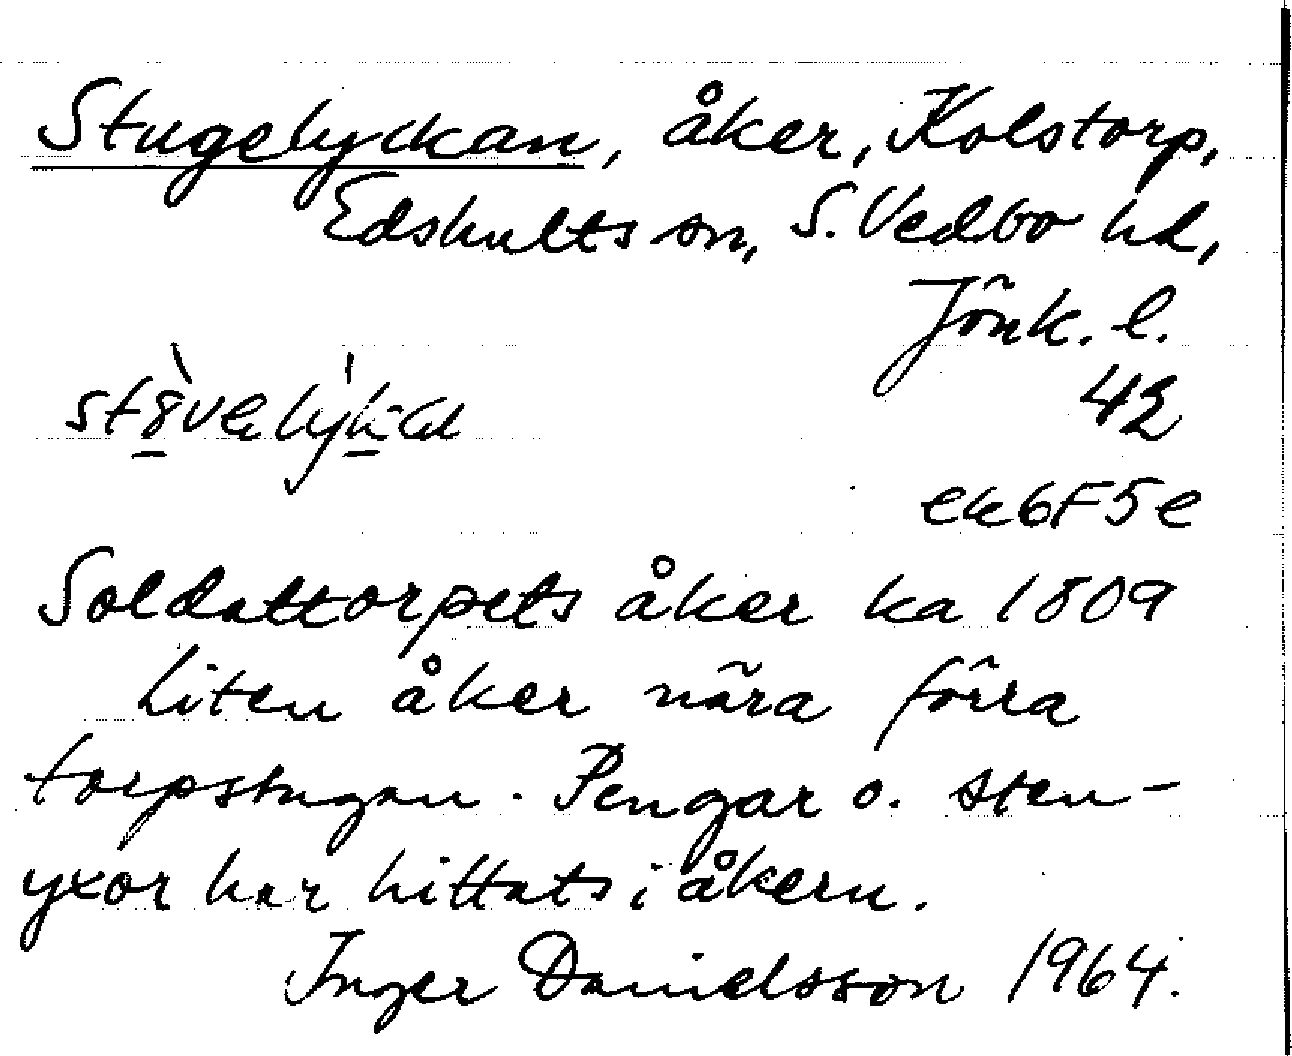 Stugelyckan, åker, Kolstorp,
Edshults sn, S. Vedbo hd,
Jönk. l.
42
ek6F5e
Soldattorpets åker ka 1809
Liten åker nära förra
torpstugan. Pengar o. sten-
yxor har hittats i åkern.
Inger Danielsson 1964.